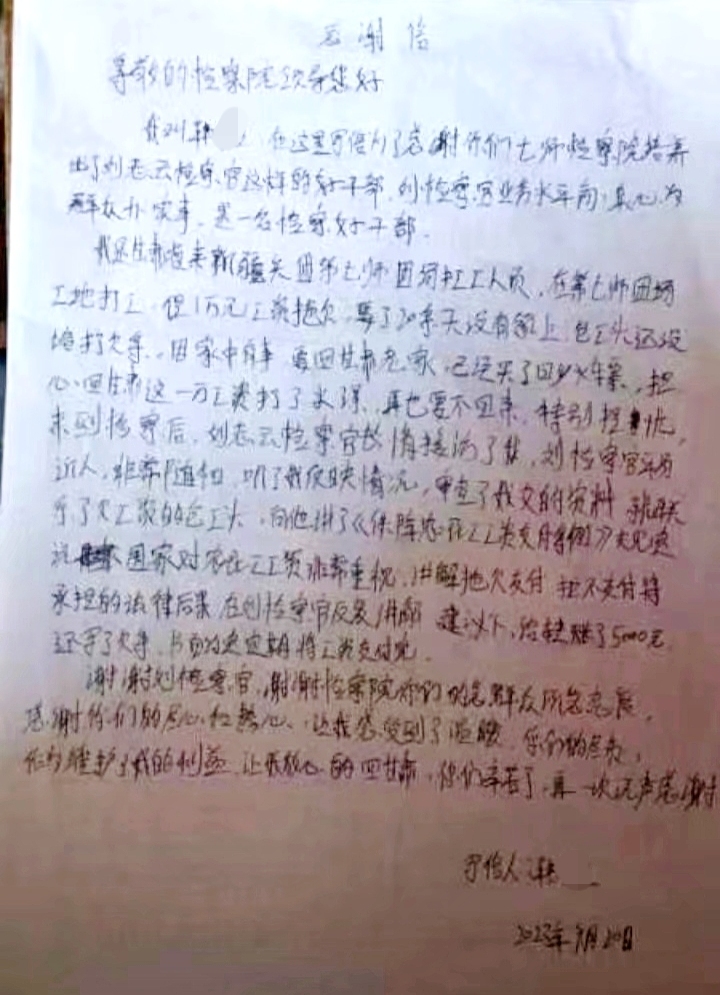 感谢信
尊敬的检察院领导您好
我叫韩 在这里写信为了感谢你们七师检察院培养
出了刘志云检察官这样的好干部,刘检察官业务水平高,真心为
群众办实事,是一名检察好干部.
我是甘肃省来新疆兵团第七师团场打工人员,在第七师团场
工地打工,但1万元工资拖欠,要了20多天没有给上,包工头还没
给打欠条,因家中有事 要回甘肃老家,已经买了回乡火车票,担
心回甘肃这一万工资打了水漂,再也要不回来,特别担忧,
来到检察后,刘志云检察官热情接待了我,刘检察官平易
近人,非常随和,听了我反映情况,审查了我交的资料 就联
系了欠工资的包工头,向他讲了《保障农民工工资支付条例》
说 国家对农民工工资非常重视,讲解拖欠支付 拒不支付将
承担的法律后果 在刘检察官反复讲解 建议下,给我 了5000元
还写了欠条,书面约定定期将工资支付完.
谢谢刘检察官,谢谢检察院你们的急群众所急
感谢你们的关心和热心,让我感受到了温暖,你们的负责,
维护了我的利益,让我放心的回甘肃,你们辛苦了,再一次说声感谢
写信人:韩
2023年 月20日